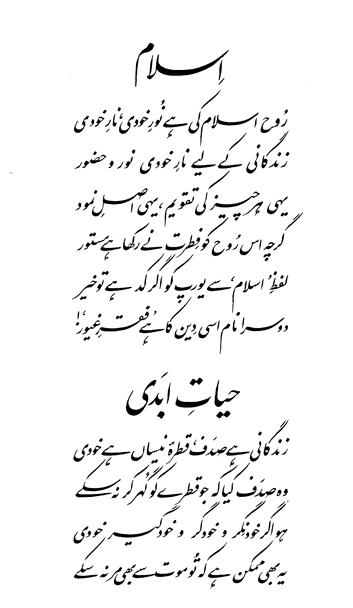 اِسلام
رُوح اسلام کی ہے نُورِ خودی، نارِ خودی
زندگانی کے لیے نارِ خودی نور و حضور
یہی ہر چیز کی تقویم، یہی اصلِ نمود
گرچہ اس رُوح کو فِطرت نے رکھا ہے مستور
لفظِ ’اسلام‘ سے یورپ کو اگر کد ہے تو خیر
دوسرا نام اسی دِین کا ہے ’فقرِ غیور‘!
حیاتِ ابَدی
زندگانی ہے صدَف، قطرۂ نیساں ہے خودی
وہ صدَف کیا کہ جو قطرے کو گُہر کر نہ سکے
ہو اگر خودنِگر و خودگر و خودگیر خودی
یہ بھی ممکن ہے کہ تُو موت سے بھی مر نہ سکے